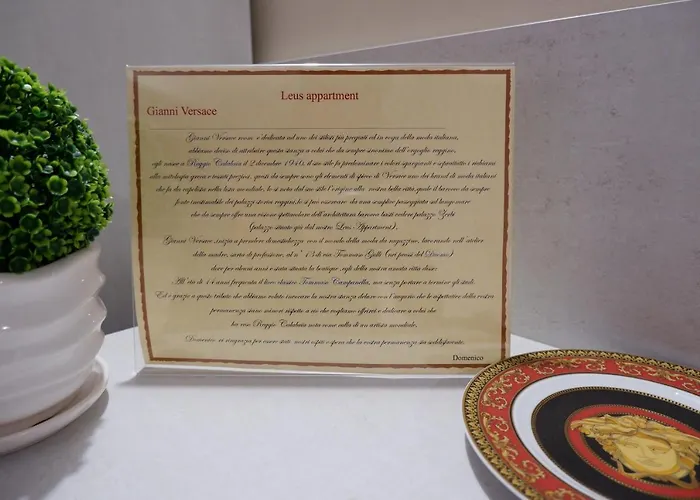 Leus appartment
Gianni Versace
Gianni Versace room è dedicata ad uno dei stilisti più pregiati ed in voga della moda italiana,
abbiamo deciso di attribuire questa stanza a colui che da sempre sinonimo dell'orgoglio reggino,
egli nasce a Reggio Calabria il 2 dicembre 1946, il suo stile fa predominare i colori sgargianti e soprattutto i richiami
alla mitologia greca e tessuti preziosi, questi da sempre sono gli elementi di spicco di Versace uno dei brand di moda italiani
che fa da capolista nella lista mondiale, lo si nota dal suo stile l'origine alla nostra bella città, quale il barocco da sempre
fonte inestimabile dei palazzi storici reggini, lo si può osservare da una semplice passeggiata sul lungo mare
che da sempre offre una visione spettacolare dell'architettura barocca basti vedere palazzo Zerbi
(palazzo situato qua dal nostro Leus Appartment).
Gianni Versace, inizia a prendere dimestichezza con il mondo della moda da ragazzino, lavorando nell'atelier
della madre, sarta di professione, al n° 13 di via Tommaso Gulli (nei pressi del Duomo)
dove per alcuni anni è stata situata la boutique, egli della nostra amata città disse:
All'età di 14 anni frequenta il liceo classico Tommaso Campanella, ma senza portare a termine gli studi.
Ed è grazie a questo tributo che abbiamo voluto iscrivere la nostra stanza deluxe con l'augurio che le aspettative della vostra
permanenza siano minori rispetto a ciò che vogliamo offrirvi e dedicare a colui che
ha reso Reggio Calabria nota come culla di un artista mondiale,
Domenico vi ringrazia per essere stati nostri ospiti e spera che la vostra permanenza sia soddisfacente.
Domenico